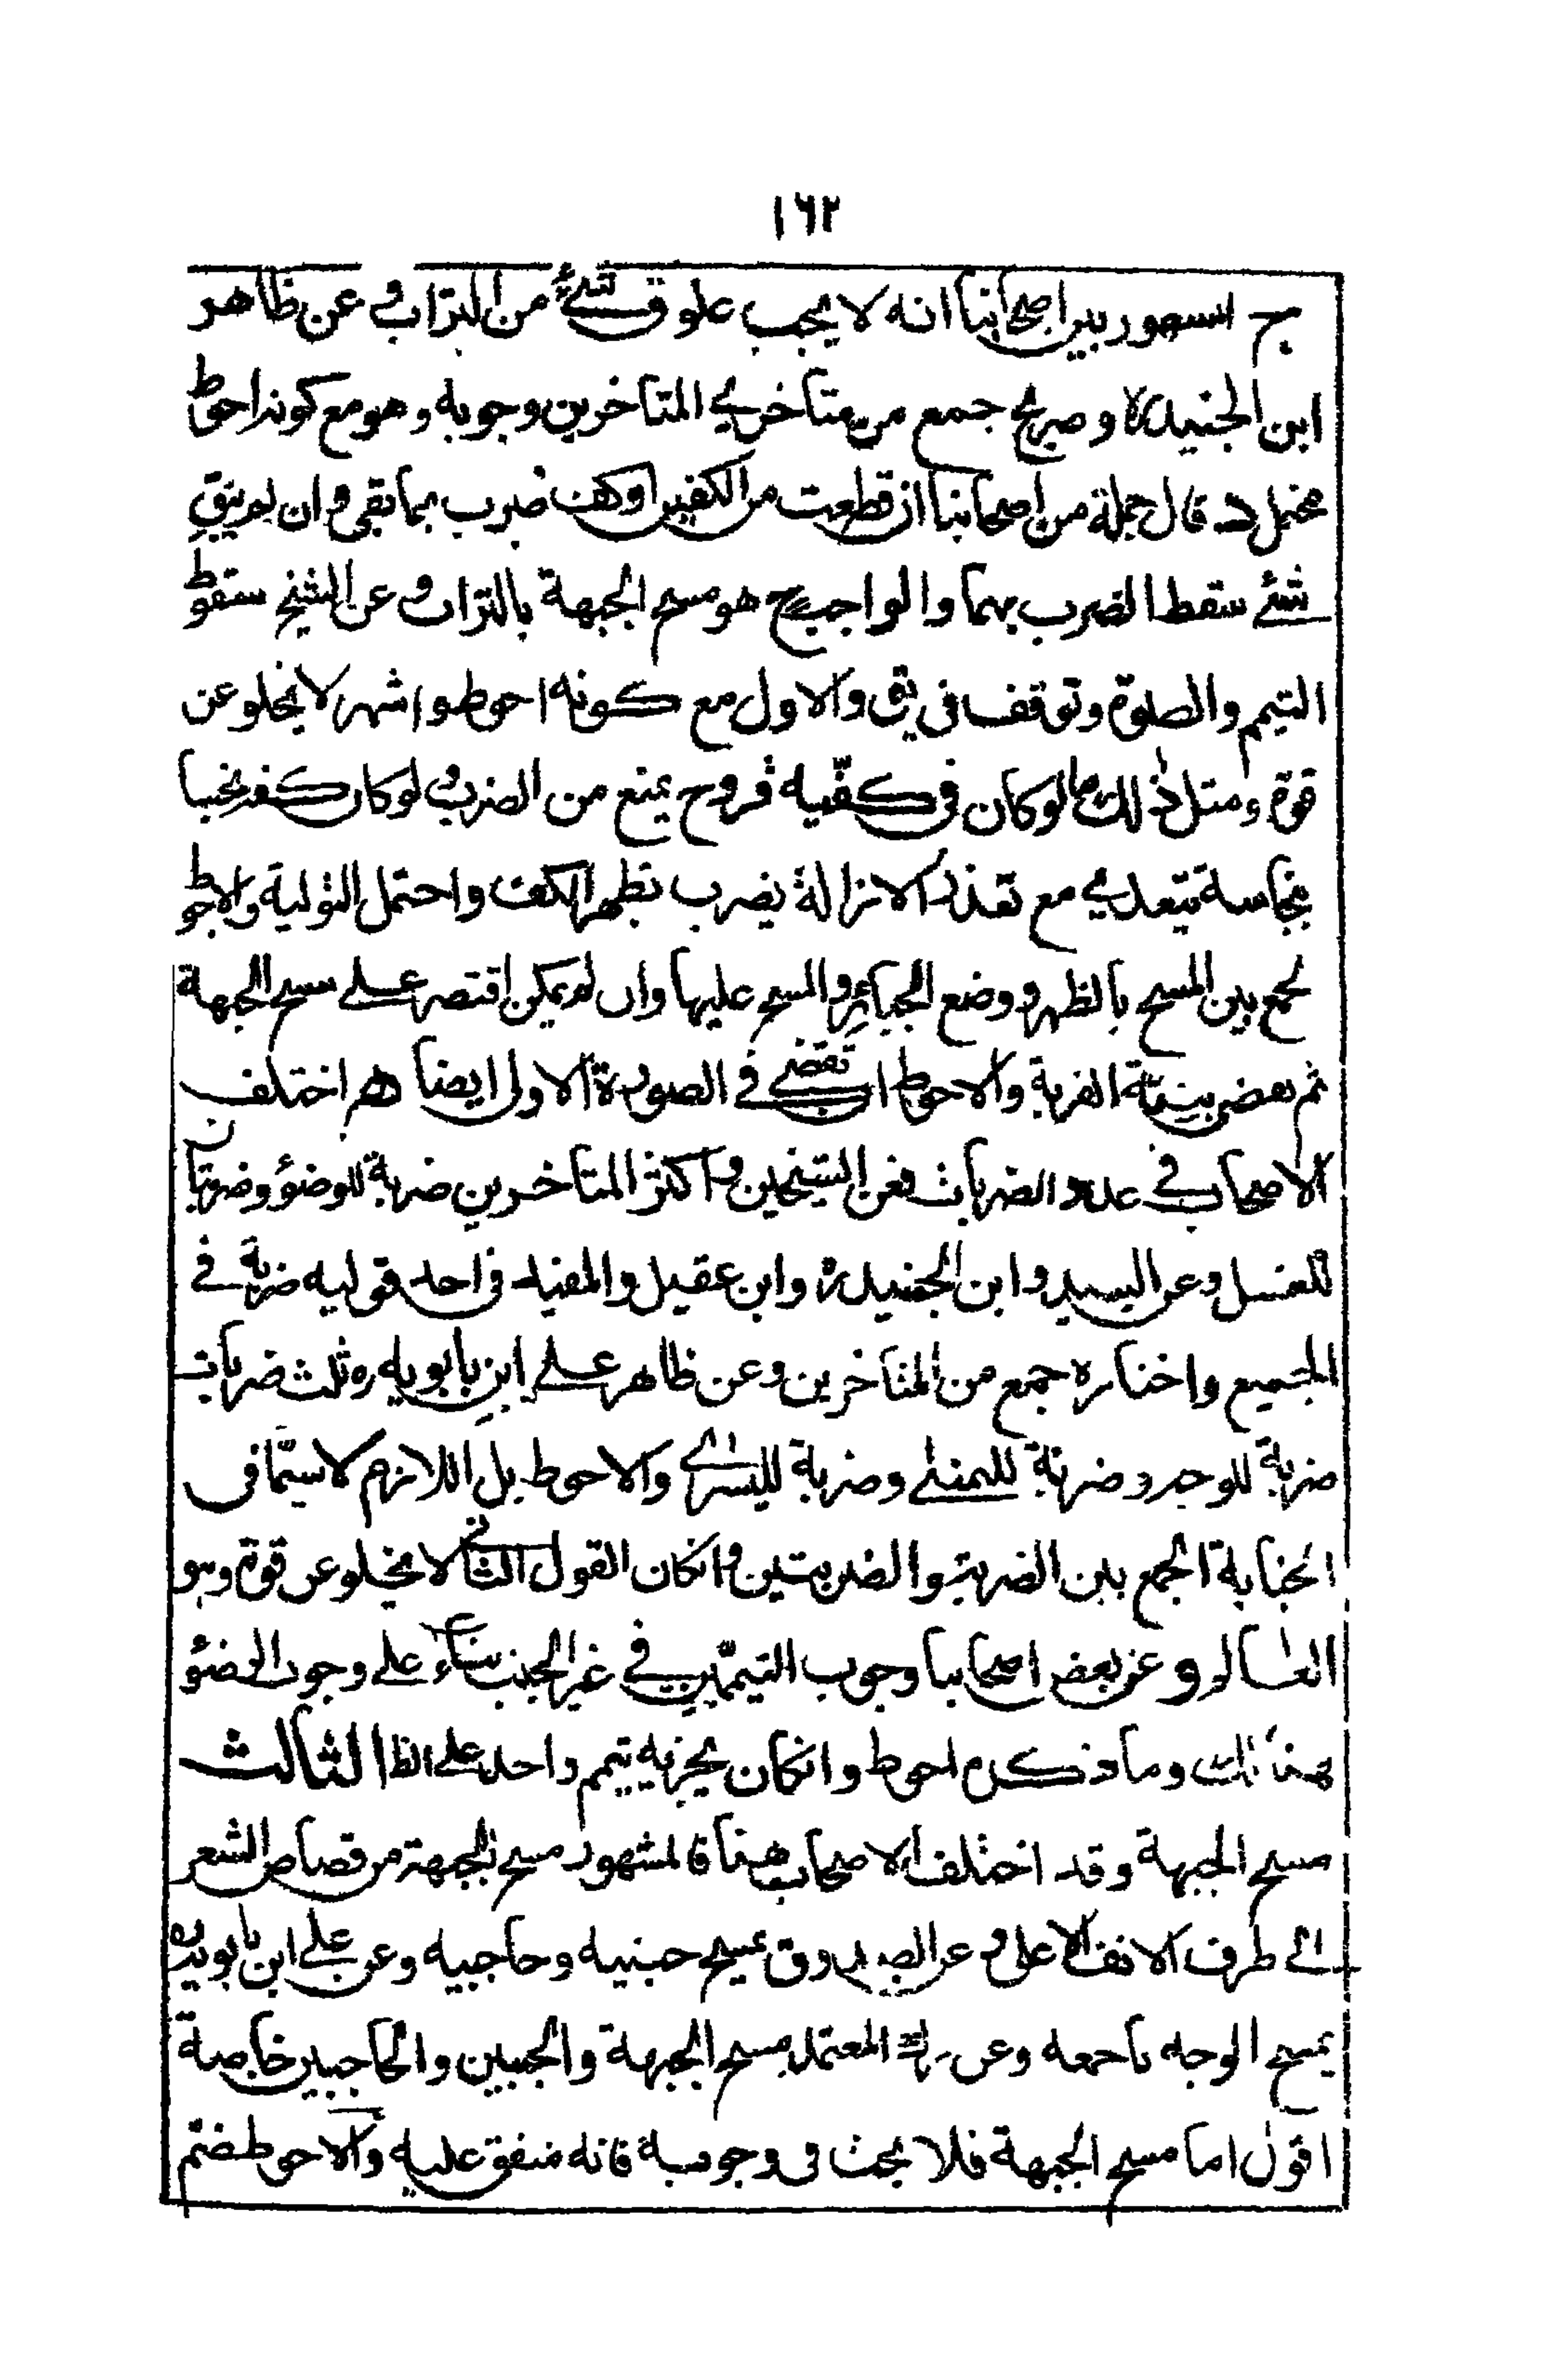 ١٦٢
ج المشهور بين اصحابنا انه لا يجب علوق شئ من التراب و عن ظاهر
ابن الجنيد ره و صريح جمع من متاخرى المتاخرين وجوبه و هو مع كونه احوط
محتمل د قال جملة من اصحابنا ان قطعت من الكفين او كف ضرب بما بقى و ان لم يبق
شئ سقط الضرب بهما و الواجب ح هو مسح الجبهة بالتراب و عن الشيخ سقوط
التيمم و الصلوة و توقف فى يق و الاول مع كونه احوط و اشهر لا يخلو عن
قوة و مثل ذلك ما لو كان فى كفّيه قروح يمنع من الضرب و لو كان كفه نجسا
بنجاسة يتعدى مع تعذر الازالة يضرب بظهر الكف و احتمل التولية و الاحوط
لجمع بين المسح بالظهر و وضع الجبائر و المسح عليها و ان لم يمكن اقتصر على مسح الجبهة
ثم بعض بنيّة القربة و الاحوط القضى فى الصورة الاولى ايضا هم اختلف
الاصحاب فى عدد الضربات فعن الشيخين و اكثر المتاخرين ضربة للوضوء و ضربتان
للغسل و عن السيد و ابن الجنيد ره و ابن عقيل و المفيد فى احد قوليه ضربة فى
الجميع و اختاره جمع من المتاخرين و عن ظاهر على ابن بابويه ره ثلث ضربات
ضربة للوجه و ضربة لليمنى و ضربة لليسرى و الاحوط بل اللازم لا سيّما فى
الجنابة الجمع بين الضربة و الضربتين و انكان القول الثانى لا يخلو عن قوة و هو
و عن بعض اصحابنا وجوب التيممّين فى غير الجنب بناء على وجوب الوضوء
هنالك و ما ذكره احوط و انكان يجزيه تيمم واحد على الظا الثالث
مسح الجبهة و قد اختلف الاصحاب هنا فالمشهور مسح الجبهة من قصاص الشعر
الى طرف الانف الاعلى و عن الصدوق يمسح جبنيه و حاجبيه و عن على ابن بابويه ره
يمسح الوجه باجمعه و عن المعتمد مسح الجبهة و الجبين و الحاجبين خاصة
اقول اما مسح الجبهة فلا بحث فى وجوبه فانه متفق عليه و الاحوط ضم